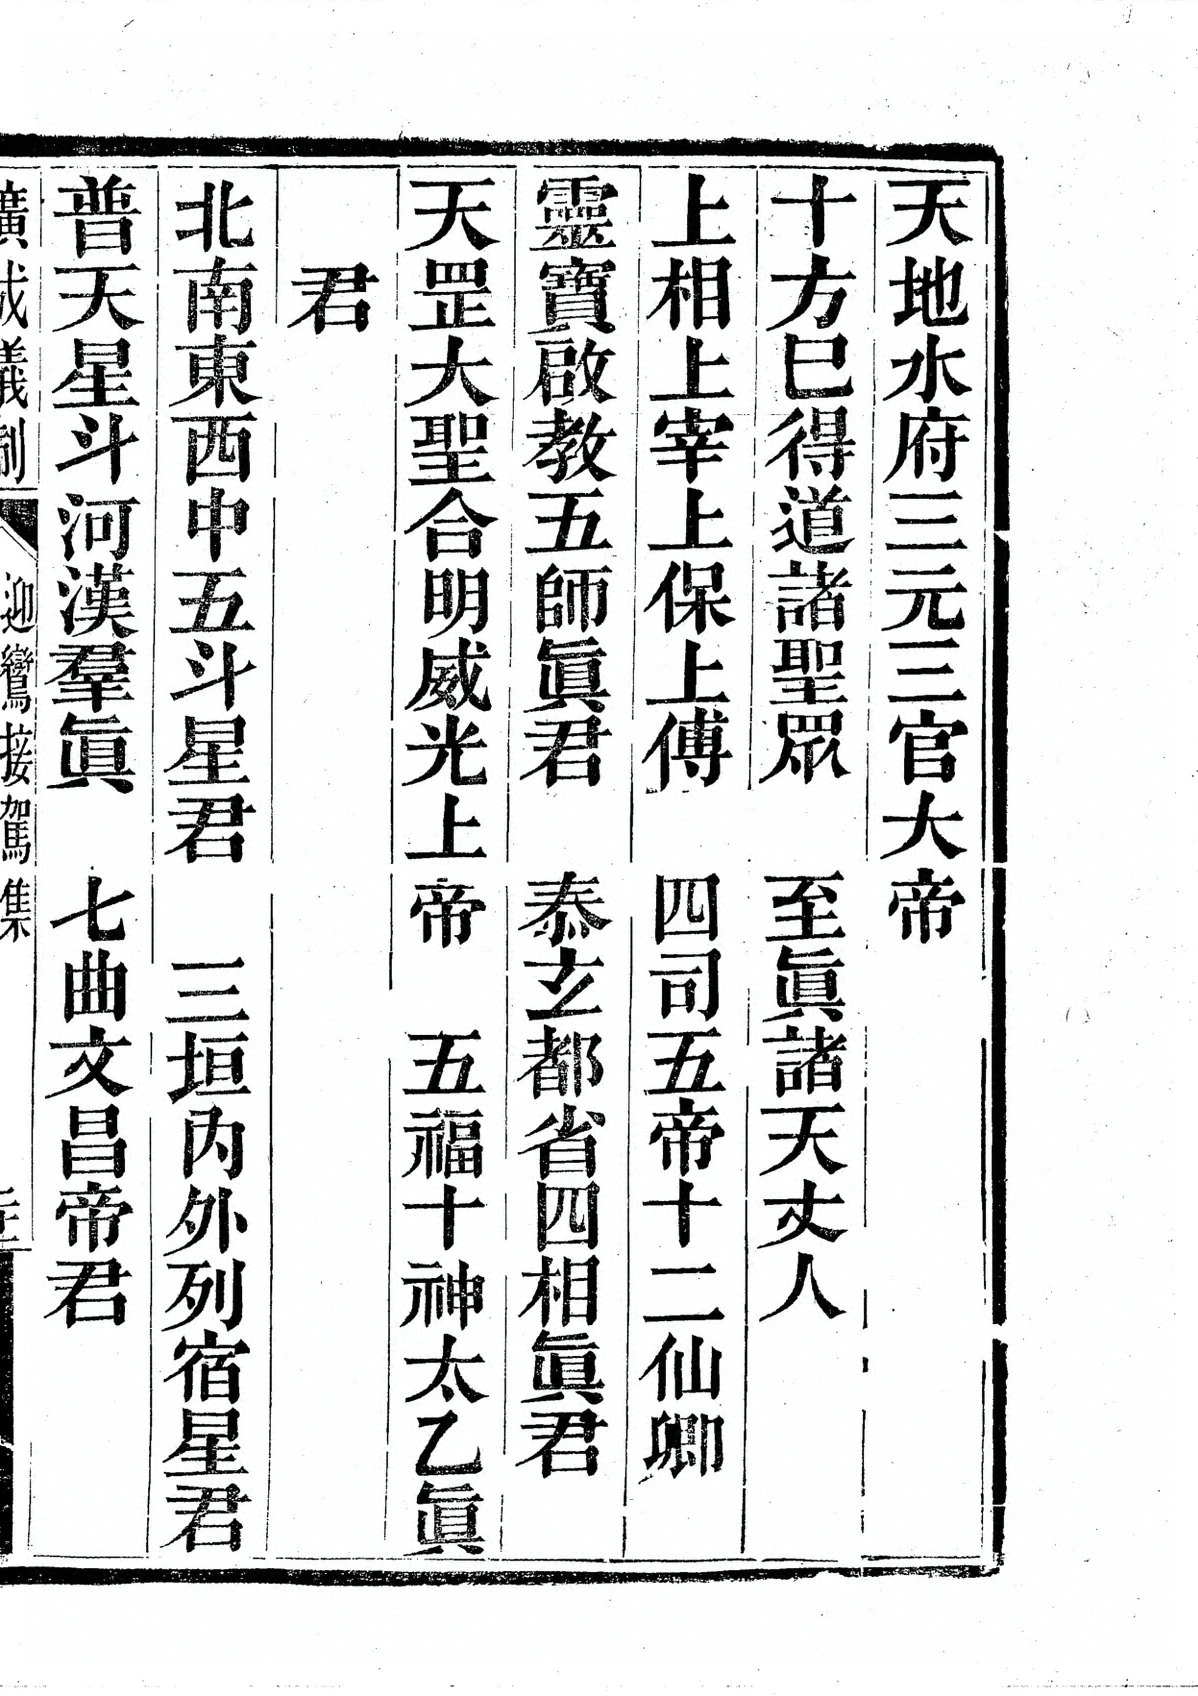 天地水府三元三官大帝
十方已得道諸聖眾　至眞諸天丈人
上相上宰上保上傅　四司五帝十二仙卿
靈寶啟教五師眞君　泰玄都省四相眞君
天罡大聖合明威光上帝　五福十神太乙眞
君
北南東西中五斗星君　三垣內外列宿星君
普天星斗河漢羣眞　七曲文昌帝君
廣成儀制　迎鸞接駕集